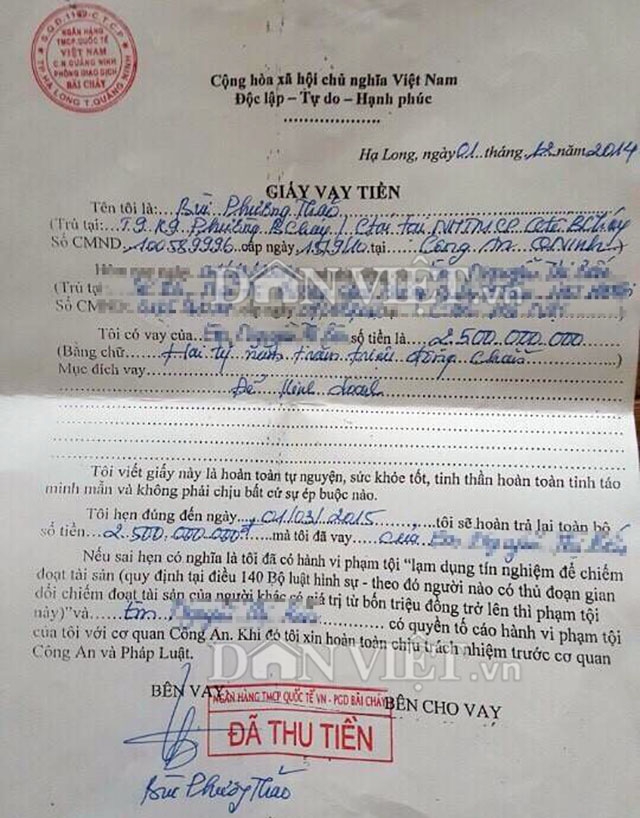 S.Q.D:1169-C.T.C.P
NGÂN HÀNG
TMCP QUỐC TẾ
VIỆT NAM
C.N QUẢNG NINH
PHÒNG GIAO DỊCH
BÃI CHÁY
TP.HẠ LONG T.QUẢNG NINH
Cộng hòa xã hội chủ nghĩa Việt Nam
Độc lập – Tự do – Hạnh phúc
Hạ Long, ngày 01 tháng 12 năm 2014
GIẤY VAY TIỀN
Tên tôi là: Bùi Phương Thảo
(Trú tại: T9 K9 Phường BCháy
Số CMND 100589996 cấp ngày 15/9/10 tại Công an QNinh
(Trú tại
Số CMND
DÂN VIỆT.vn
Tôi có vay của Nguyễn Thị số tiền là 2.500.000.000
(Bằng chữ Hai tỷ năm trăm triệu đồng chẵn)
Mục đích vay
Để Kinh doanh
Tôi viết giấy này là hoàn toàn tự nguyện, sức khỏe tốt, tinh thần hoàn toàn tỉnh táo
minh mẫn và không phải chịu bất cứ sự ép buộc nào.
Tôi hẹn đúng đến ngày 01/03/2015, tôi sẽ hoàn trả lại toàn bộ
số tiền 2.500.000.000đ mà tôi đã vay của
Nếu sai hẹn có nghĩa là tôi đã có hành vi phạm tội "lạm dụng tín nghiệm để chiếm
đoạt tài sản (quy định tại điều 140 Bộ luật hình sự - theo đó người nào có thủ đoạn gian
dối chiếm đoạt tài sản của người khác có giá trị từ bốn triệu đồng trở lên thì phạm tội
này)"và Em có quyền tố cáo hành vi phạm tội
của tôi với cơ quan Công An. Khi đó tôi xin hoàn toàn chịu trách nhiệm trước cơ quan
Công An và Pháp Luật.
DÂN VIỆT.vn
BÊN VAY
BÊN CHO VAY
NGÂN HÀNG TMCP QUỐC TẾ VN - PGD BÃI CHÁY
ĐÃ THU TIỀN
Bùi Phương Thảo